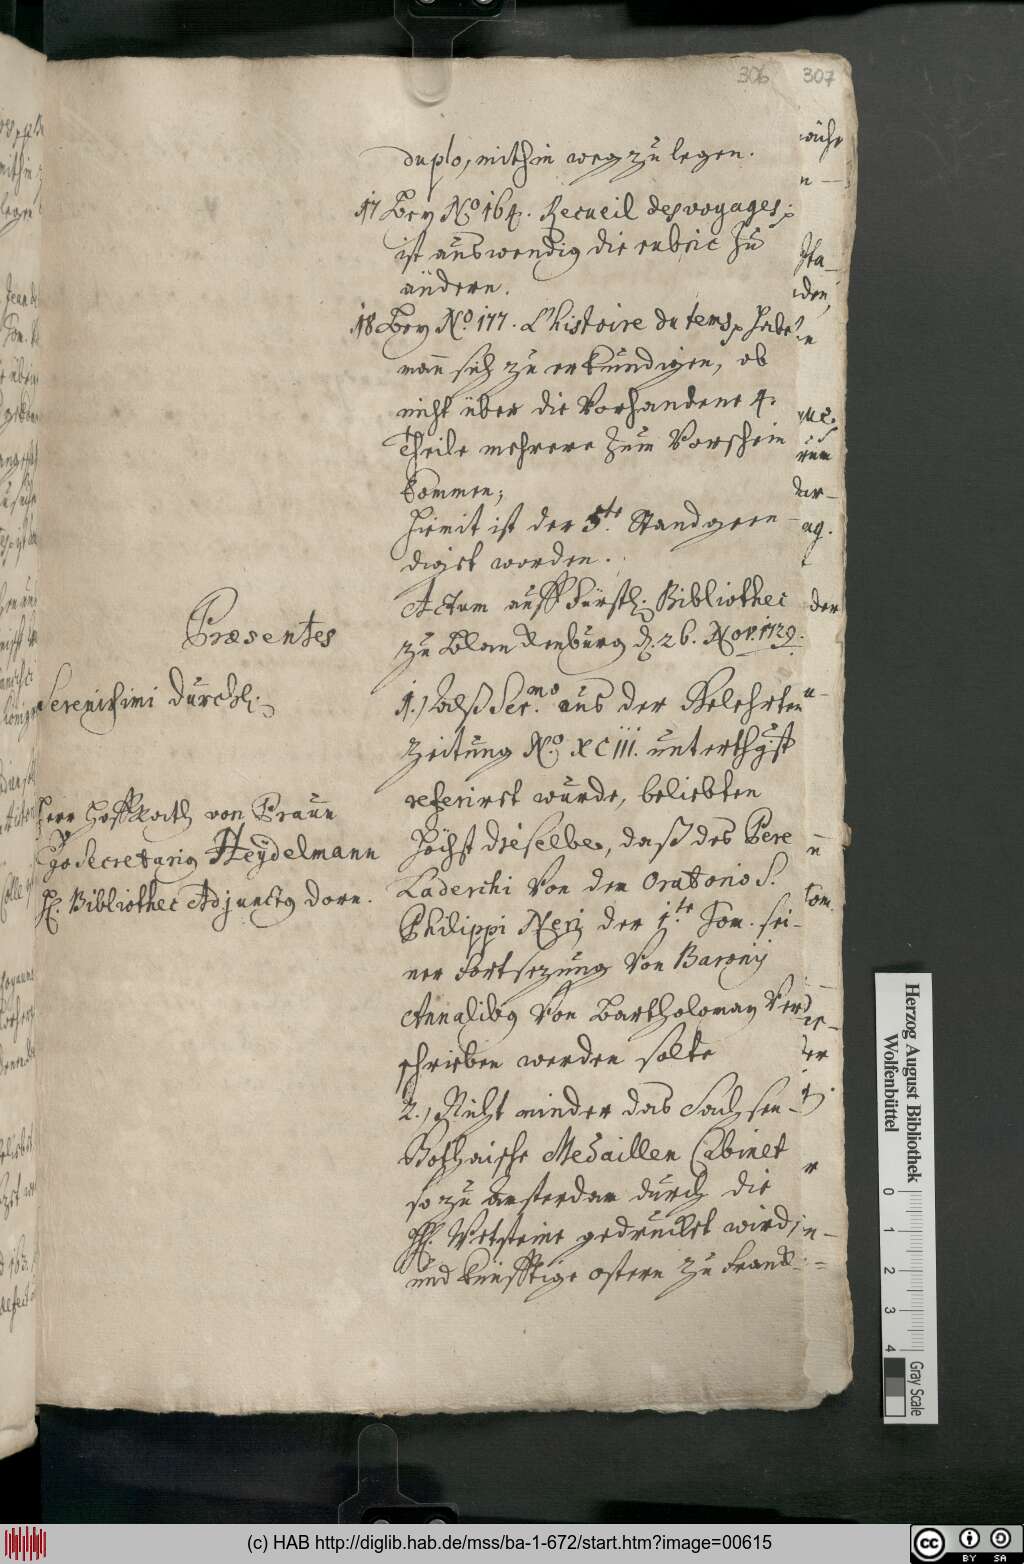 306 307
duplo, mithin weg zu legen.
17 Bey No. 164. Recueil des voyages
ist auswendig die rubric zu
ändern.
18 Bey No. 177. L'histoire du tems, habe
man sich zu erkundigen, ob
nicht über die Vorhandene 4.
Theile mehrere zum Vorschein
kommen;
Hiemit ist der 5te. Stand geen-
digt worden.
Actum auff Fürstl. Bibliothec
zu Blanckenburg d. 26. Nov. 1729.
Præsentes
Serenissimi Durchl.
Herr Hoffrath von Praun
Ego Secretarius Heydelmann
H. Bibliothec Adjunctus Dorn.
1.) Alß Ser.mo aus der Gelehrten
Zeitung No. XCIII. unterthgst
referirt wurde, beliebten
Höchst dieselbe, daß des Pere
Laderchi Von dem Oratorio S.
Philippi Nerj der 1.te Tom. sei-
ner Fortsezung Von Baronij
Annalibus Von Bartholomay Ver
schrieben werden solte
2.) Nicht minder das Sachsen-
Gothaische Medaillen Cabinet
so zu Amsterdam durch die
HH. Wetsteine gedruckt wird,
und künfftige ostern zu Franck-
Herzog August Bibliothek
Wolfenbüttel
0 1 2 3 4
Gray Scale
(c) HAB http://diglib.hab.de/mss/ba-1-672/start.htm?image=00615
cc BY SA